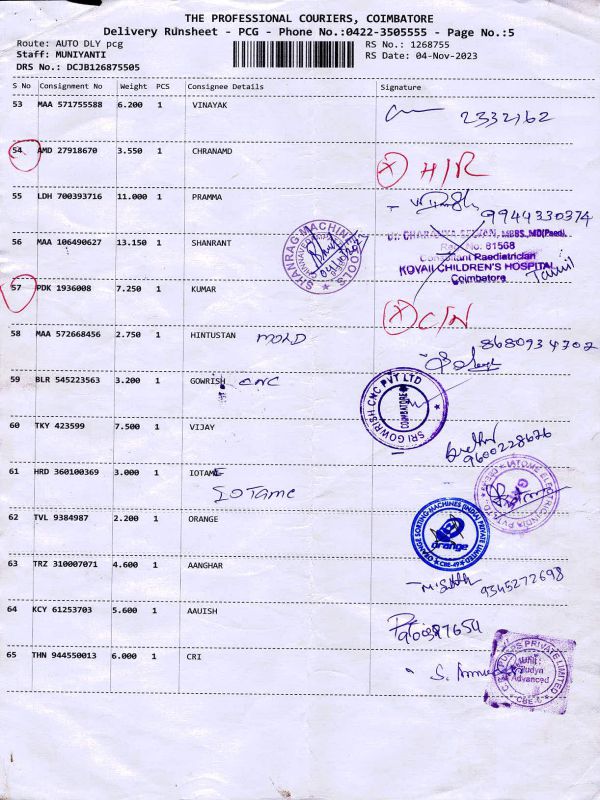 THE PROFESSIONAL COURIERS, COIMBATORE
Delivery Runsheet - PCG - Phone No.:0422-3505555 - Page No.:5
Route: AUTO DLY pcg RS No.: 1268755
Staff: MUNIYANTI RS Date: 04-Nov-2023
DRS No.: DCJB126875505
S No Consignment No Weight PCS Consignee Details Signature
53 MAA 571755588 6.200 1 VINAYAK 2332162
54 AMD 27918670 3.550 1 CHRANAMD X H/R
55 LDH 700393716 11.000 1 PRAMMA 9944330374
56 MAA 106490627 13.150 1 SHANRANT
SHANRAG MACHINE TOOLS
MBBS.,MD(Paed).,
Reg No: 81568
Consultant Paediatrician
KOVAII CHILDREN'S HOSPITAL
Coimbatore Tamil
57 PDK 1936008 7.250 1 KUMAR X C/N
58 MAA 572668456 2.750 1 HINTUSTAN MOLD 8680934702
59 BLR 545223563 3.200 1 GOWRISH CNC
SRI GOWRISH CNC PVT LTD
COIMBATORE
60 TKY 423599 7.500 1 VIJAY
9600228626
61 HRD 360100369 3.000 1 IOTAME
IOTAME
62 TVL 9384987 2.200 1 ORANGE
ORANGE SORTING MACHINES (INDIA) PRIVATE LIMITED
orange
CBE-49
63 TRZ 310007071 4.600 1 AANGHAR 9345272698
64 KCY 61253703 5.600 1 AAUISH
65 THN 944550013 6.000 1 CRI
PRIVATE LIMITED
Advanced